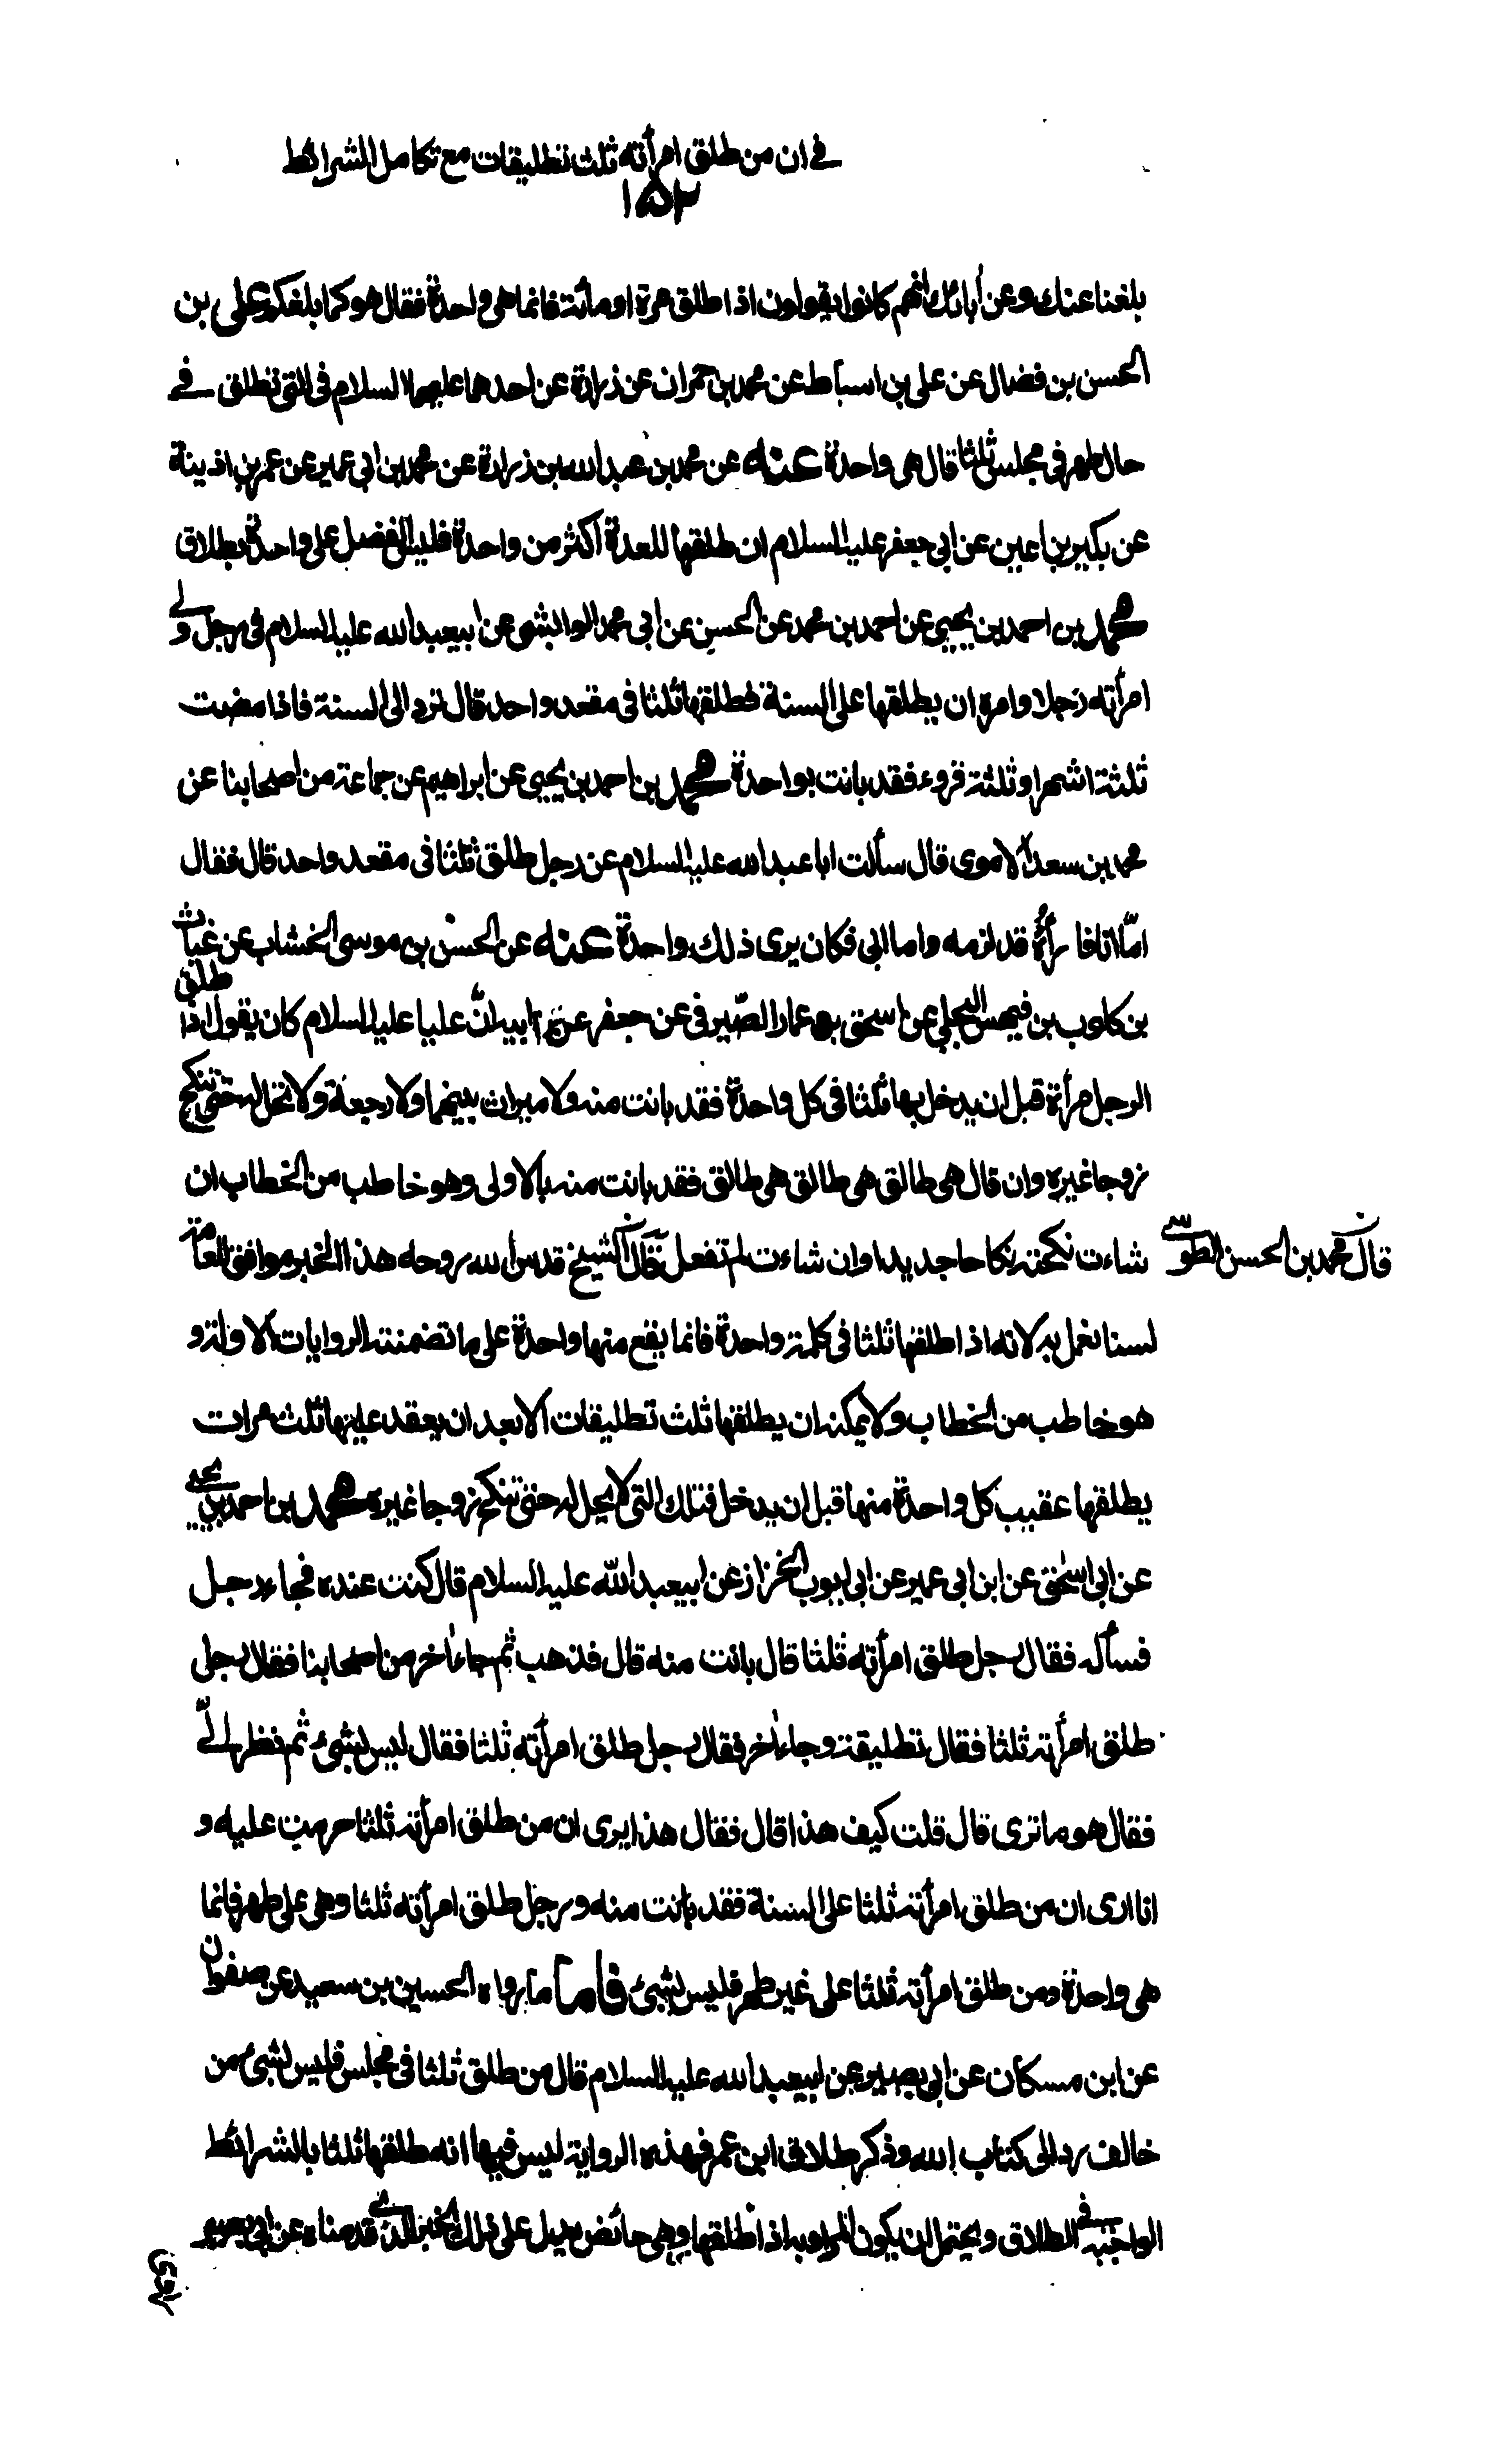 في ان من طلق امرأته ثلث تطليقات مع تكامل الشرائط
١٥٢
بلغنا عنك وعن أبائك انهم كانوا يقولون اذا طلق مرة او مائة فانما هى واحدة فقال هو كما بلغكم وعلى بن
الحسن بن فضال عن على بن اسباط عن محمد بن حمران عن زرارة عن احدهما عليهما السلام فى التى تطلق في
حال طهر فى مجلس ثلثا قال هى واحدة عنه عن محمد بن عبد الله بن زرارة عن محمد بن ابى عمير عن عمر بن اذينة
عن بكير بن اعين عن ابى جعفر عليه السلام ان طلقها للعدة اكثر من واحدة فليس الفضل على واحدة بطلاق
محمد بن احمد بن يحيى عن احمد بن محمد عن الحسن عن ابى محمد الوابشى عن ابيعبد الله عليه السلام فى رجل ولى
امرأته رجلا وامره ان يطلقها على السنة فطلقها ثلثا فى مقعد واحد قال ترد الى السنة فاذا مضت
ثلثة اشهر او ثلثة قروء فقد بانت بواحدة محمد بن احمد بن يحيى عن ابراهيم عن جماعة من اصحابنا عن
محمد بن سعد الاموى قال سألت ابا عبد الله عليه السلام عن رجل طلق ثلثا فى مقعد واحد قال فقال
امّا انا فارأه قد لزمه واما ابى فكان يرى ذلك واحدة عنه عن الحسن بن موسى الخشاب عن غياث
بن كلوب بن فيهس البجلى عن اسحق بن عمار الصّيرفى عن جعفر عن ابيه انّ عليا عليه السلام كان يقول اذا طلق
الرجل مرأة قبل ان يدخل بها ثلثا فى كل واحدة فقد بانت منه ولا ميراث بينهما ولا رجعة ولا تحل له حتى تنكح
زوجا غيره وان قال هى طالق هى طالق هى طالق فقد بانت منه بالاولى وهو خاطب من الخطاب ان
شاءت نكحته نكاحا جديدا وان شاءت لم تفعل قال الشيخ قدس الله روحه هذا الخبر موافق للعامة
قال محمد بن الحسن الطوسي
لسنا نعمل به لانه اذا طلقها ثلثا فى كلمة واحدة فانما يقع منها واحدة على ما تضمنته الروايات الاولة و
هو خاطب من الخطاب ولا يمكنه ان يطلقها ثلث تطليقات الا بعد ان يعقد عليها ثلث مرات
يطلقها عقيب كل واحدة منها قبل ان يدخل فتلك التى لا يحل له حتى تنكح زوجا غيره محمد بن احمد بن يحيى
عن ابى اسحق عن ابن ابى عمير عن ابى ايوب الخزاز عن ابيعبد الله عليه السلام قال كنت عنده فجاء رجل
فسأله فقال رجل طلق امرأته ثلثا قال بانت منه قال فذهب ثم جاء اخر من اصحابنا فقال رجل
طلق امرأته ثلثا فقال تطليقة وجاء اخر فقال رجل طلق امرأته ثلثا فقال ليس بشئ ثم نظر الىّ
فقال هو ما ترى قال قلت كيف هذا قال فقال هذا يرى ان من طلق امرأته ثلثا حرمت عليه و
انا ارى ان من طلق امرأته ثلثا على السنة فقد بانت منه ورجل طلق امرأته ثلثا وهى على طهر فانما
هى واحدة ومن طلق امرأته ثلثا على غير طهر فليس بشئ فاما ما رواه الحسين بن سعيد عن صفوان
عن ابن مسكان عن ابى بصير عن ابيعبد الله عليه السلام قال من طلق ثلثا فى مجلس فليس بشئ من
خالف رد الى كتاب الله وذكر طلاق ابن عمر فهذه الرواية ليس فيها انه طلقها ثلثا بالشرائط
الواجبة في الطلاق ويحتمل ان يكون المراد به اذا طلقها وهى حائض يدل على ذلك الخبر الذى قدمناه عن ابى بصير